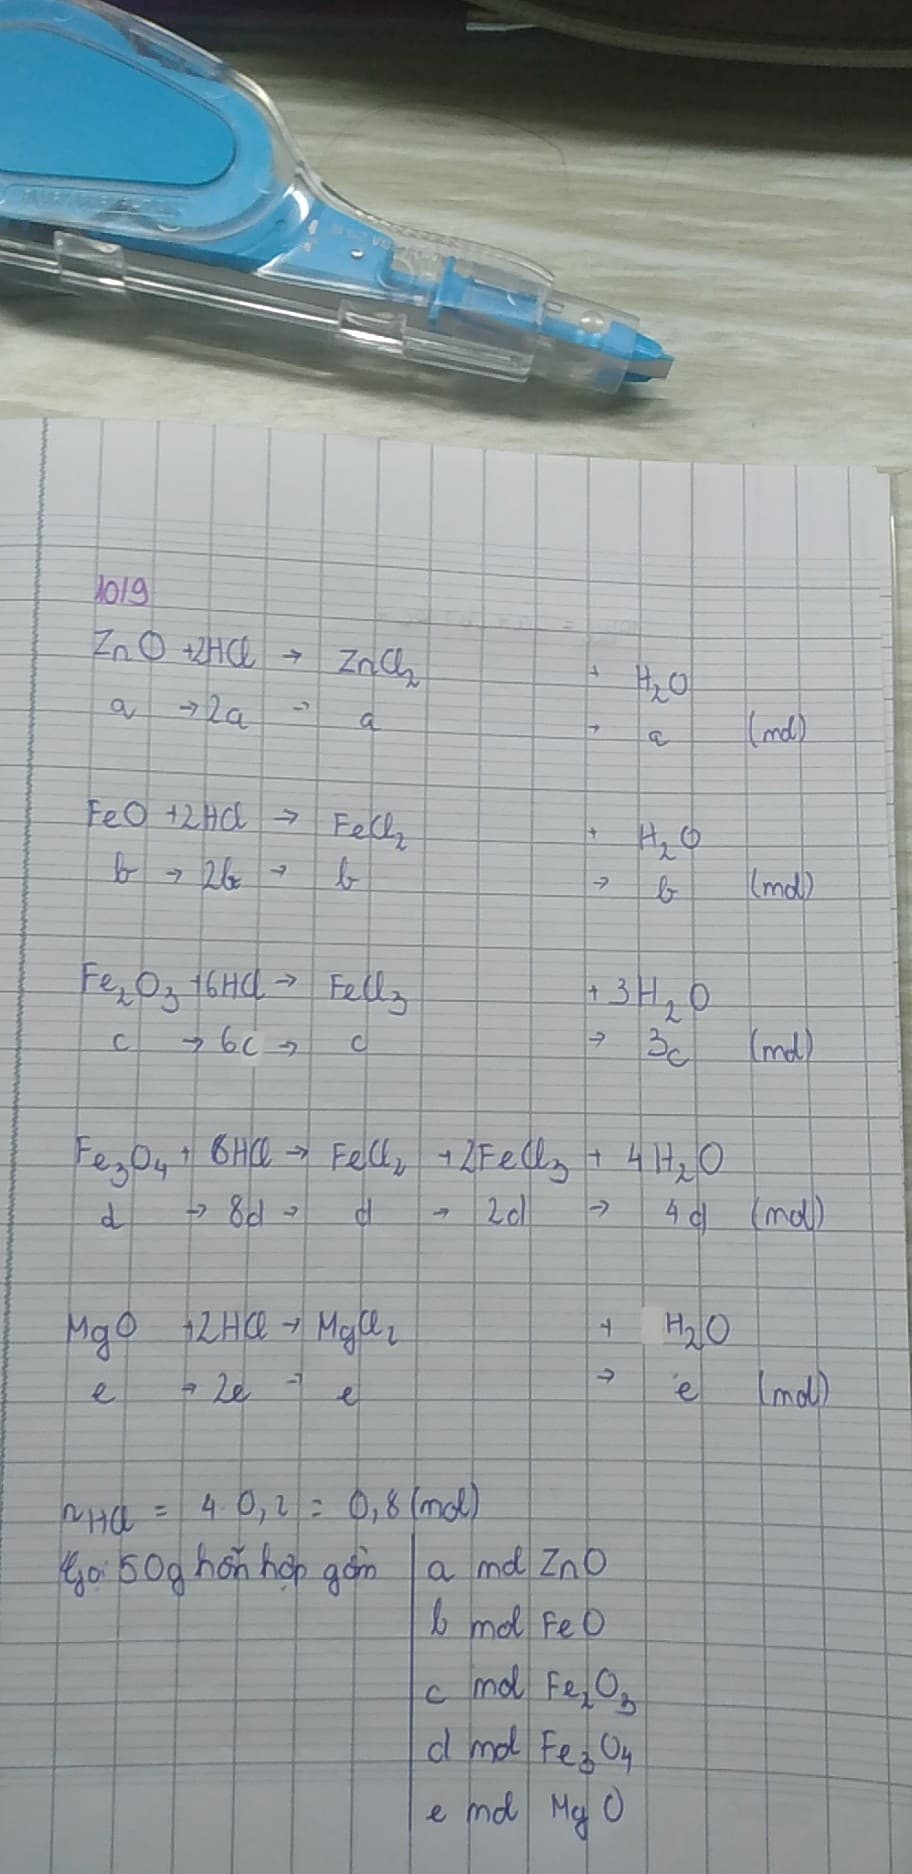 10/9
ZnO +2HCl → ZnCl2 + H2O
a → 2a → a → a (mol)
FeO +2HCl → FeCl2 + H2O
b → 2b → b → b (mol)
Fe2O3 +6HCl → FeCl3 + 3H2O
c → 6c → c → 3c (mol)
Fe3O4 + 8HCl → FeCl2 +2FeCl3 + 4H2O
d → 8d → d → 2d → 4d (mol)
MgO +2HCl → MgCl2 + H2O
e → 2e → e → e (mol)
nHCl = 4.0,2 = 0,8 (mol)
Gọi 50g hỗn hợp gồm a mol ZnO
b mol FeO
c mol Fe2O3
d mol Fe3O4
e mol MgO